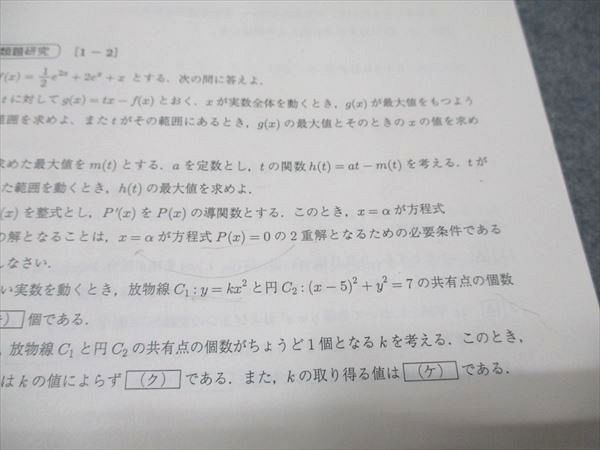 類題研究 [1－2]
f(x) = 1/2 e^{2x} + 2e^x + x とする．次の問に答えよ．
t に対して g(x) = tx − f(x) とおく．x が実数全体を動くとき，g(x) が最大値をもつよう
範囲を求めよ．また t がその範囲にあるとき，g(x) の最大値とそのときの x の値を求め
求めた最大値を m(t) とする．a を定数とし，t の関数 h(t) = at − m(t) を考える．t が
た範囲を動くとき，h(t) の最大値を求めよ．
(x) を整式とし，P′(x) を P(x) の導関数とする．このとき，x = α が方程式
の解となることは，x = α が方程式 P(x) = 0 の 2 重解となるための必要条件である
しなさい．
い実数を動くとき，放物線 C₁ : y = kx² と円 C₂ : (x − 5)² + y² = 7 の共有点の個数
) 個である．
，放物線 C₁ と円 C₂ の共有点の個数がちょうど 1 個となる k を考える．このとき，
は k の値によらず (ク) である．また，k の取り得る値は (ケ) である．